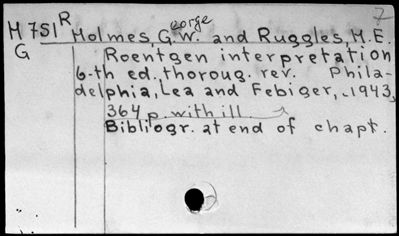 7
M 751 R
G
Holmes, George W. and Ruggles, M.E.
Roentgen interpretation
6-th ed. thoroug. rev. Phila-
delphia, Lea and Febiger, 1943,
364 p. with ill.
Bibliogr. at end of chapt.